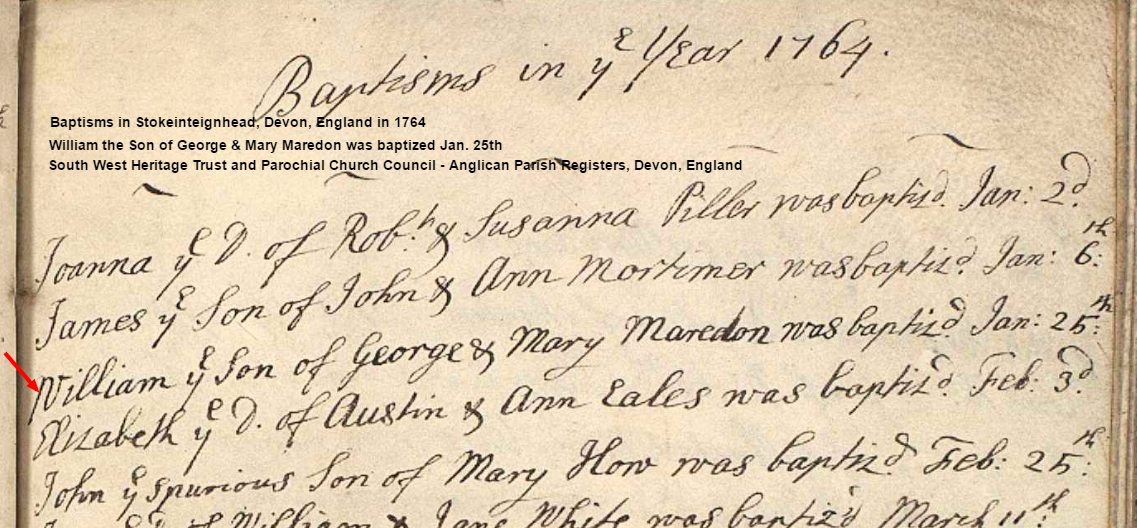 Baptisms in yͤ Year 1764.
Baptisms in Stokeinteignhead, Devon, England in 1764
William the Son of George & Mary Maredon was baptized Jan. 25th
South West Heritage Trust and Parochial Church Council - Anglican Parish Registers, Devon, England
Joanna yͤ D. of Rob:ᵗ & Susanna Piller was baptiz'd Jan: 2ᵈ
James yͤ Son of John & Ann Mortimer was baptiz'd Jan: 6:ᵗʰ
William yͤ Son of George & Mary Maredon was baptiz'd Jan: 25:ᵗʰ
Elizabeth yͤ D. of Austin & Ann Eales was baptiz'd Feb: 3ᵈ
John yͤ spurious Son of Mary How was baptiz'd Feb: 25:ᵗʰ
yͤ D. of William & Jane White was baptiz'd March 11ᵗʰ